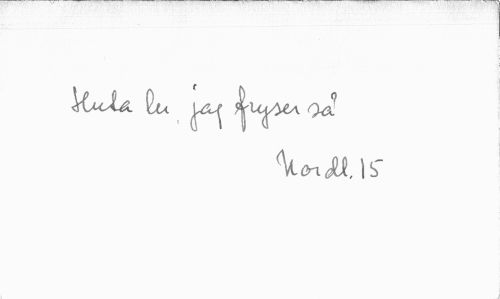 Huta le, jag fryser så
Nordl. 15